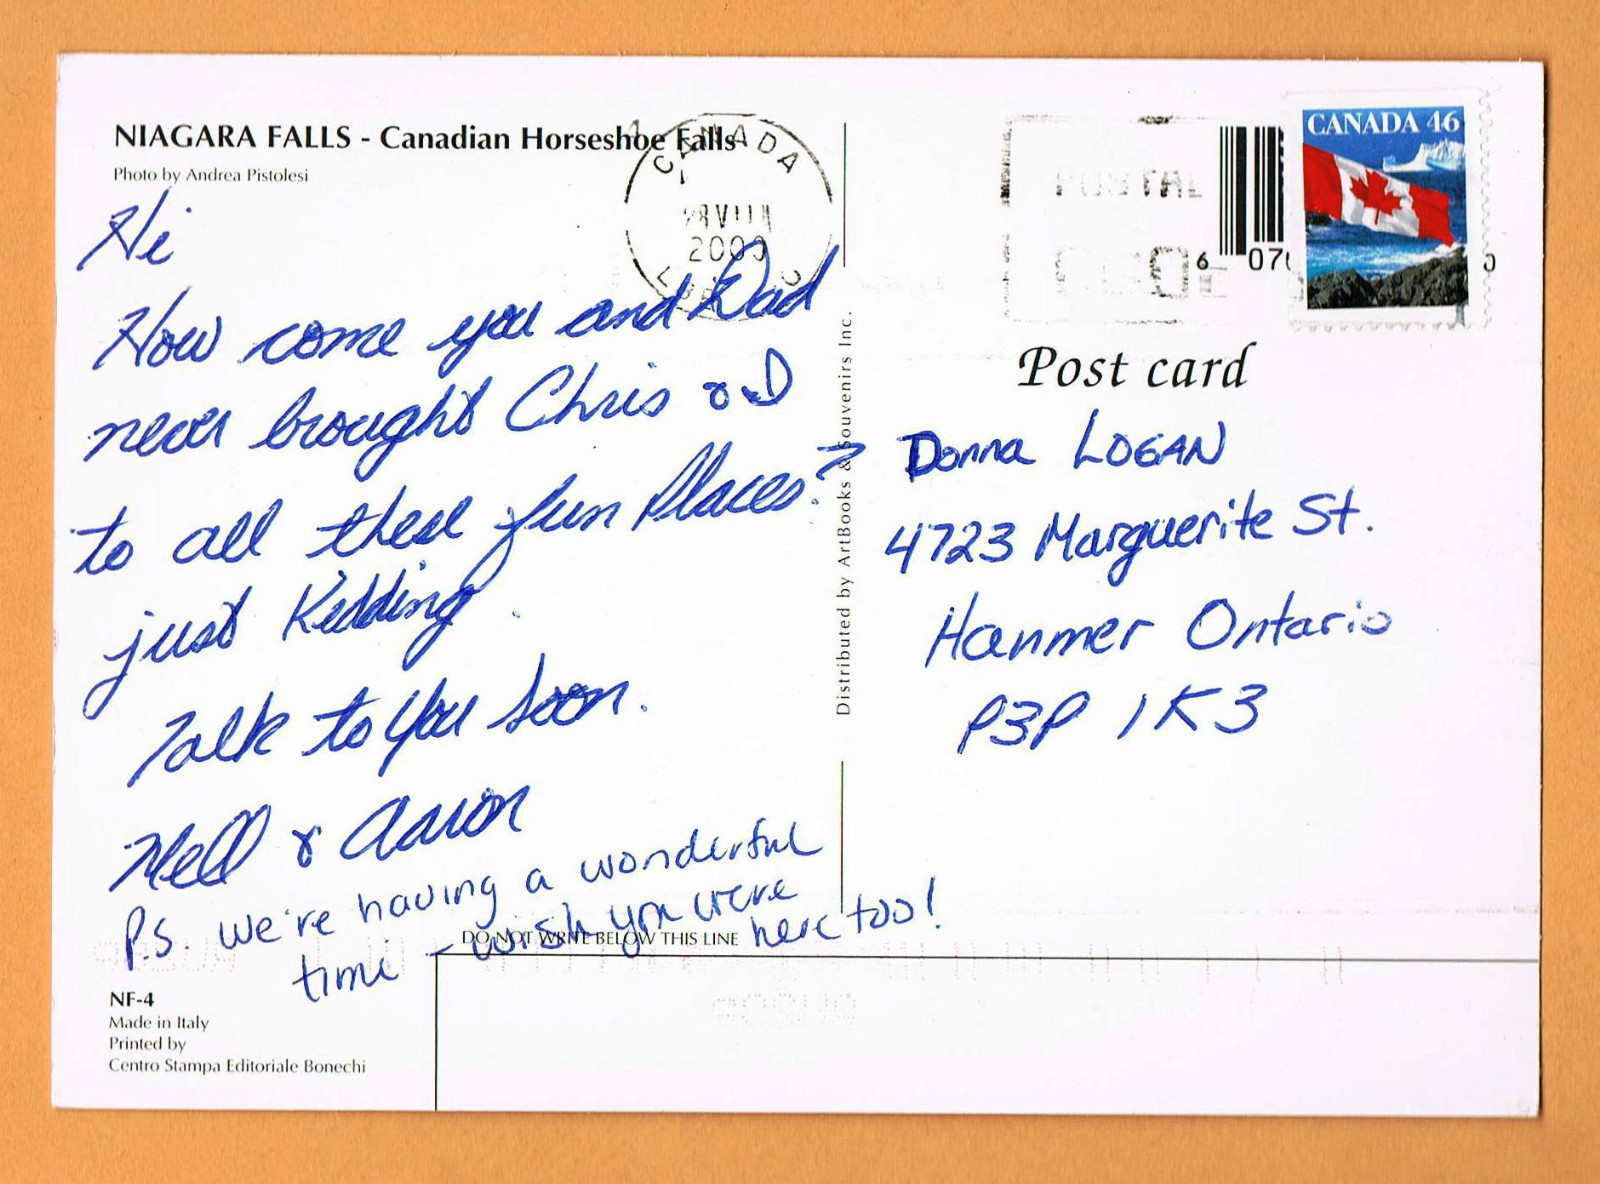 NIAGARA FALLS - Canadian Horseshoe Falls
Photo by Andrea Pistolesi
Hi
How come you and Dad
never brought Chris & I
to all these fun Places?
just Kidding.
Talk to you soon.
Mell & Aaron
P.S. We're having a wonderful
time - wish you were
here too!
DO NOT WRITE BELOW THIS LINE
NF-4
Made in Italy
Printed by
Centro Stampa Editoriale Bonechi
Distributed by ArtBooks & Souvenirs Inc.
CANADA
2000
POSTAL
CODE
6 07
0
CANADA 46
Post card
Donna LOGAN
4723 Marguerite St.
Hanmer Ontario
P3P 1K3